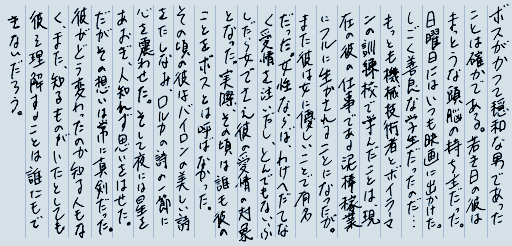 ボスがかつて穏和な男であった
ことは確かである。若き日の彼は
まっとうな頭脳の持ち主だった。
日曜日にはいつも映画に出かけた。
しごく善良な学生だったのだ…
もっとも機械技術者とボイラーマ
ンの訓練校で学んだことは、現
在の彼の仕事である泥棒稼業
にフルに生かされることになったが。
また彼は女に優しいことで有名
だった。女性ならば、わけへだてな
く愛情を注いだし、とんでもないふ
しだら女でさえ彼の愛情の対象
となった。実際、その頃は誰も彼の
ことをボスとは呼ばなかった。
その頃の彼はバイロンの美しい詩
をたしなみ、ロルカの詩の一節に
心を震わせた。そして夜には星を
あおぎ、人知れず思いをはせた。
だがその想いは常に真剣だった。
彼がどう変わったのか知る人もな
く、また、知るものがいたとしても
彼を理解することは誰にもで
きないだろう。